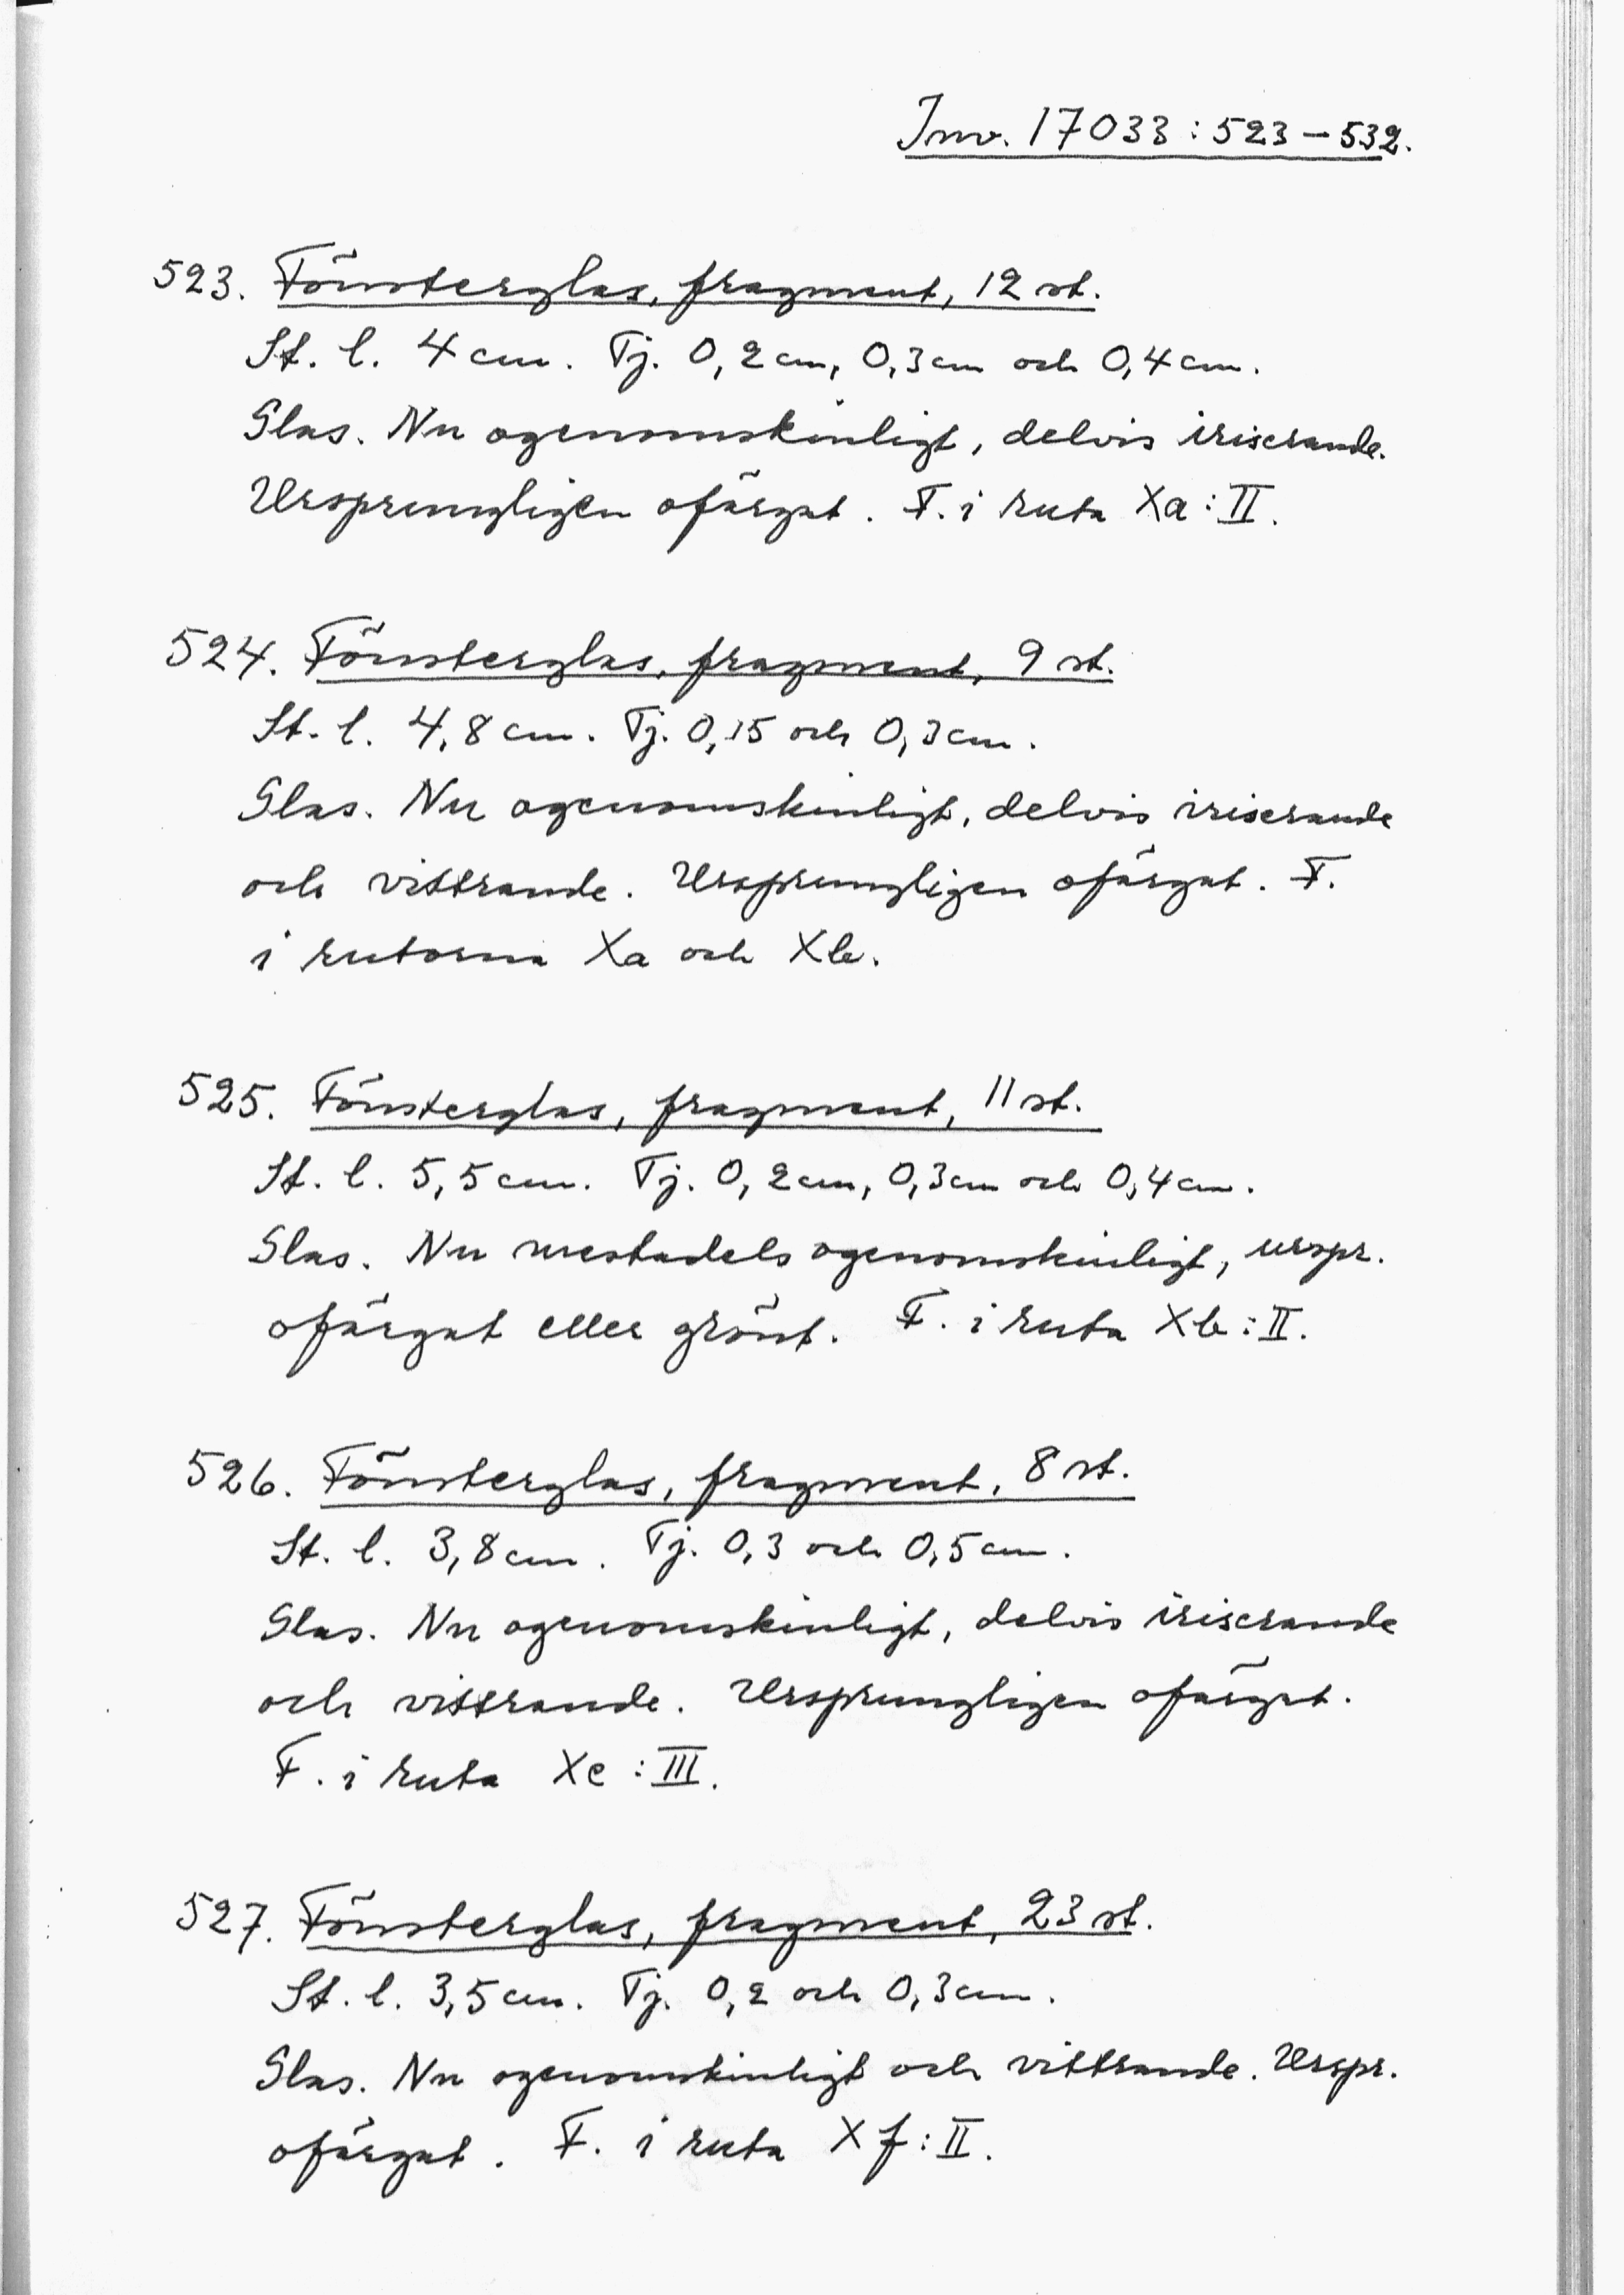 Inv. 17033 : 523 – 532.
523. Fönsterglas, fragment, 12 st.
St. l. 4 cm. Tj. 0,2 cm, 0,3 cm och 0,4 cm.
Glas. Nu ogenomskinligt, delvis iriserande.
Ursprungligen ofärgat. F. i ruta Xa : II.
524. Fönsterglas, fragment, 9 st.
St. l. 4,8 cm. Tj. 0,15 och 0,3 cm.
Glas. Nu ogenomskinligt, delvis iriserande
och vittrande. Ursprungligen ofärgat. F.
i rutorna Xa och Xb.
525. Fönsterglas, fragment, 11 st.
St. l. 5,5 cm. Tj. 0,2 cm, 0,3 cm och 0,4 cm.
Glas. Nu mestadels ogenomskinligt, urspr.
ofärgat eller grönt. F. i ruta Xb : II.
526. Fönsterglas, fragment, 8 st.
St. l. 3,8 cm. Tj. 0,3 och 0,5 cm.
Glas. Nu ogenomskinligt, delvis iriserande
och vittrande. Ursprungligen ofärgat.
F. i ruta Xe : III.
527. Fönsterglas, fragment, 23 st.
St. l. 3,5 cm. Tj. 0,2 och 0,3 cm.
Glas. Nu ogenomskinligt och vittrande. Urspr.
ofärgat. F. i ruta Xf : II.